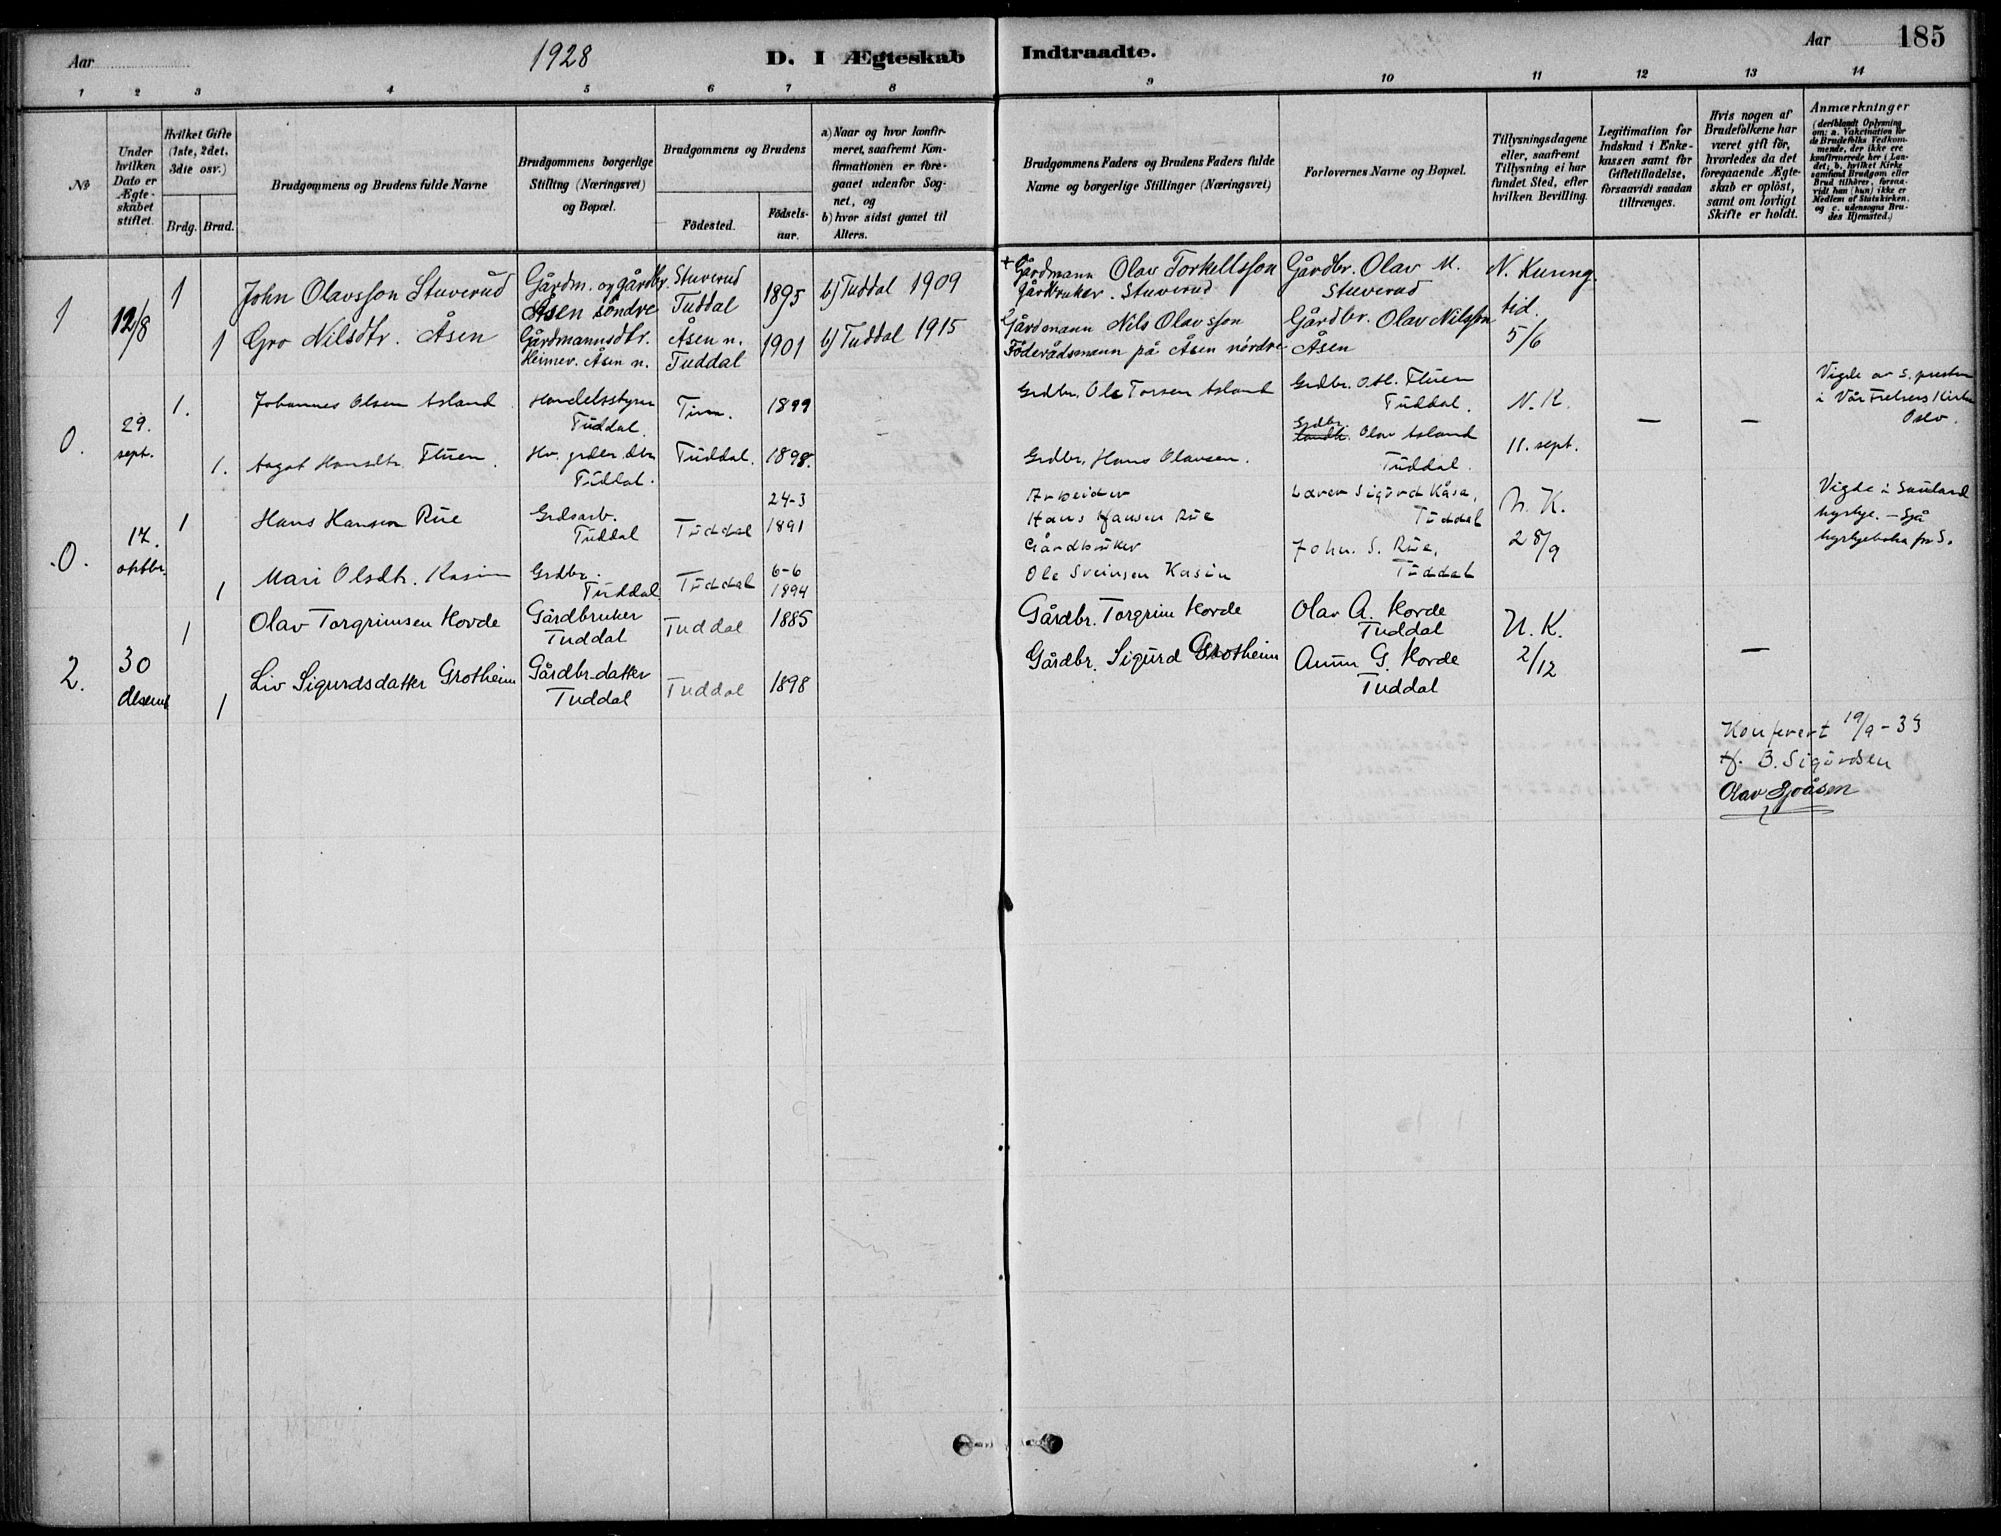 Aar 1928 D. I Ægteskab Indtraadte. Aar 185
1 2 3 4 5 6 7 8 9 10 11 12 13 14
No
Under hvilken Dato er Ægteskabet stiftet.
Hvilket Gifte (1ste, 2det, 3die osv.)
Brdg. Brud.
Brudgommens og Brudens fulde Navne
Brudgommens borgerlige Stilling (Næringsvei) og Bopæl.
Brudgommens og Brudens
Fødested.
Fødsels-aar.
a) Naar og hvor konfir-
meret, saafremt Kon-
firmationen er fore-
gaaet udenfor Sog-
net, og
b) hvor sidst gaaet til
Alters.
Brudgommens Faders og Brudens Faders fulde
Navne og borgerlige Stillinger (Næringsvei)
Forlovernes Navne og Bopæl.
Tillysningsdagene
eller, saafremt
Tillysning ei har
fundet Sted, efter
hvilken Bevilling.
Legitimation for
Indskud i Enke-
kassen samt for
Giftetilladelse,
forsaavidt saadan
tiltrænges.
Hvis nogen af
Brudefolkene har
været gift før,
hvorledes da det
foregaaende Ægte-
skab er opløst,
samt om lovligt
Skifte er holdt.
Anmærkninger
(deriblandt Oplysning
om: a. Vakcination for
de Brudefolks Vedkom-
mende, der ikke ere
konfirmerede her i Lan-
det, b. hvilket Kirke
samfund Brudgom eller
Brud tilhører, forsaa-
vidt han (hun) ikke er
Medlem af Statskirken,
og c. udensogns Bru-
des Hjemsted.)
1 12/8 1 John Olavsson Stuverud Gårdm. og gårdbr. Åsen söndre Stuverud Tuddal 1895 b) Tuddal 1909
+ Gårdmann Olav Torkellsson
gårdbruker. Stuverud
Gårdbr. Olav M.
Stuverud
N. Kunng.
tid.
5/6
1 Gro Nilsdtr. Åsen Gårdmannsdtr. Heimev. Åsen n. Åsen n. Tuddal 1901 b) Tuddal 1915
Gårdmann Nils Olavsson
Föderådsmann på Åsen nördre
Gårdbr. Olav Nilsson
Åsen
0. 29. sept. 1. Johannes Olsen Asland Handelsstyrer Tuddal. Tinn. 1899
Grdbr. Ole Torsen Asland
Grdbr. Otl. Fluen
Tuddal.
N. K.
11. sept.
— —
Vigde av s. presten
i Vår Frelsers Kirke
Oslo.
1. Aagot Hansdtr. Fluen. Tuddal. Tuddal. 1898.
Grdbr. Hans Olavsen.
Grdbr. Olav Asland
Tuddal.
.0. 17. oktbr. 1 Hans Hansen Rue Grdsarb. Tuddal Tuddal 24-3 1891
Arbeider
Hans Hansen Rue
Lærer Sigurd Kåsa,
Tuddal
N. K.
28/9
Vigde i Sauland
kyrkje. – Sjå
kyrkjeboka for S.
1 Mari Olsdtr. Kasin Grdbr. Tuddal Tuddal 6-6 1894
Gårdbruker
Ole Sveinsen Kasin
John. S. Rue,
Tuddal
2. 30 desemb 1 Olav Torgrimsen Hovde Gårdbruker Tuddal Tuddal 1885
Gårdbr. Torgrim Hovde
Olav A. Hovde
Tuddal
N. K.
2/12
—
1 Liv Sigurdsdatter Grotheim Gårdbr-datter Tuddal Tuddal 1898
Gårdbr. Sigurd Grotheim
G. Hovde
Tuddal
Konferert 19/9-35
H. B. Sigurdsen
Olav Sjåsen